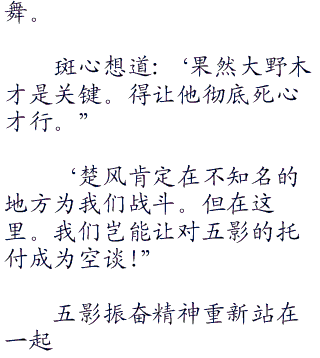 舞。
斑心想道:‘果然大野木
才是关键。得让他彻底死心
才行。”
‘楚风肯定在不知名的
地方为我们战斗。但在这
里。我们岂能让对五影的托
付成为空谈!”
五影振奋精神重新站在
一起